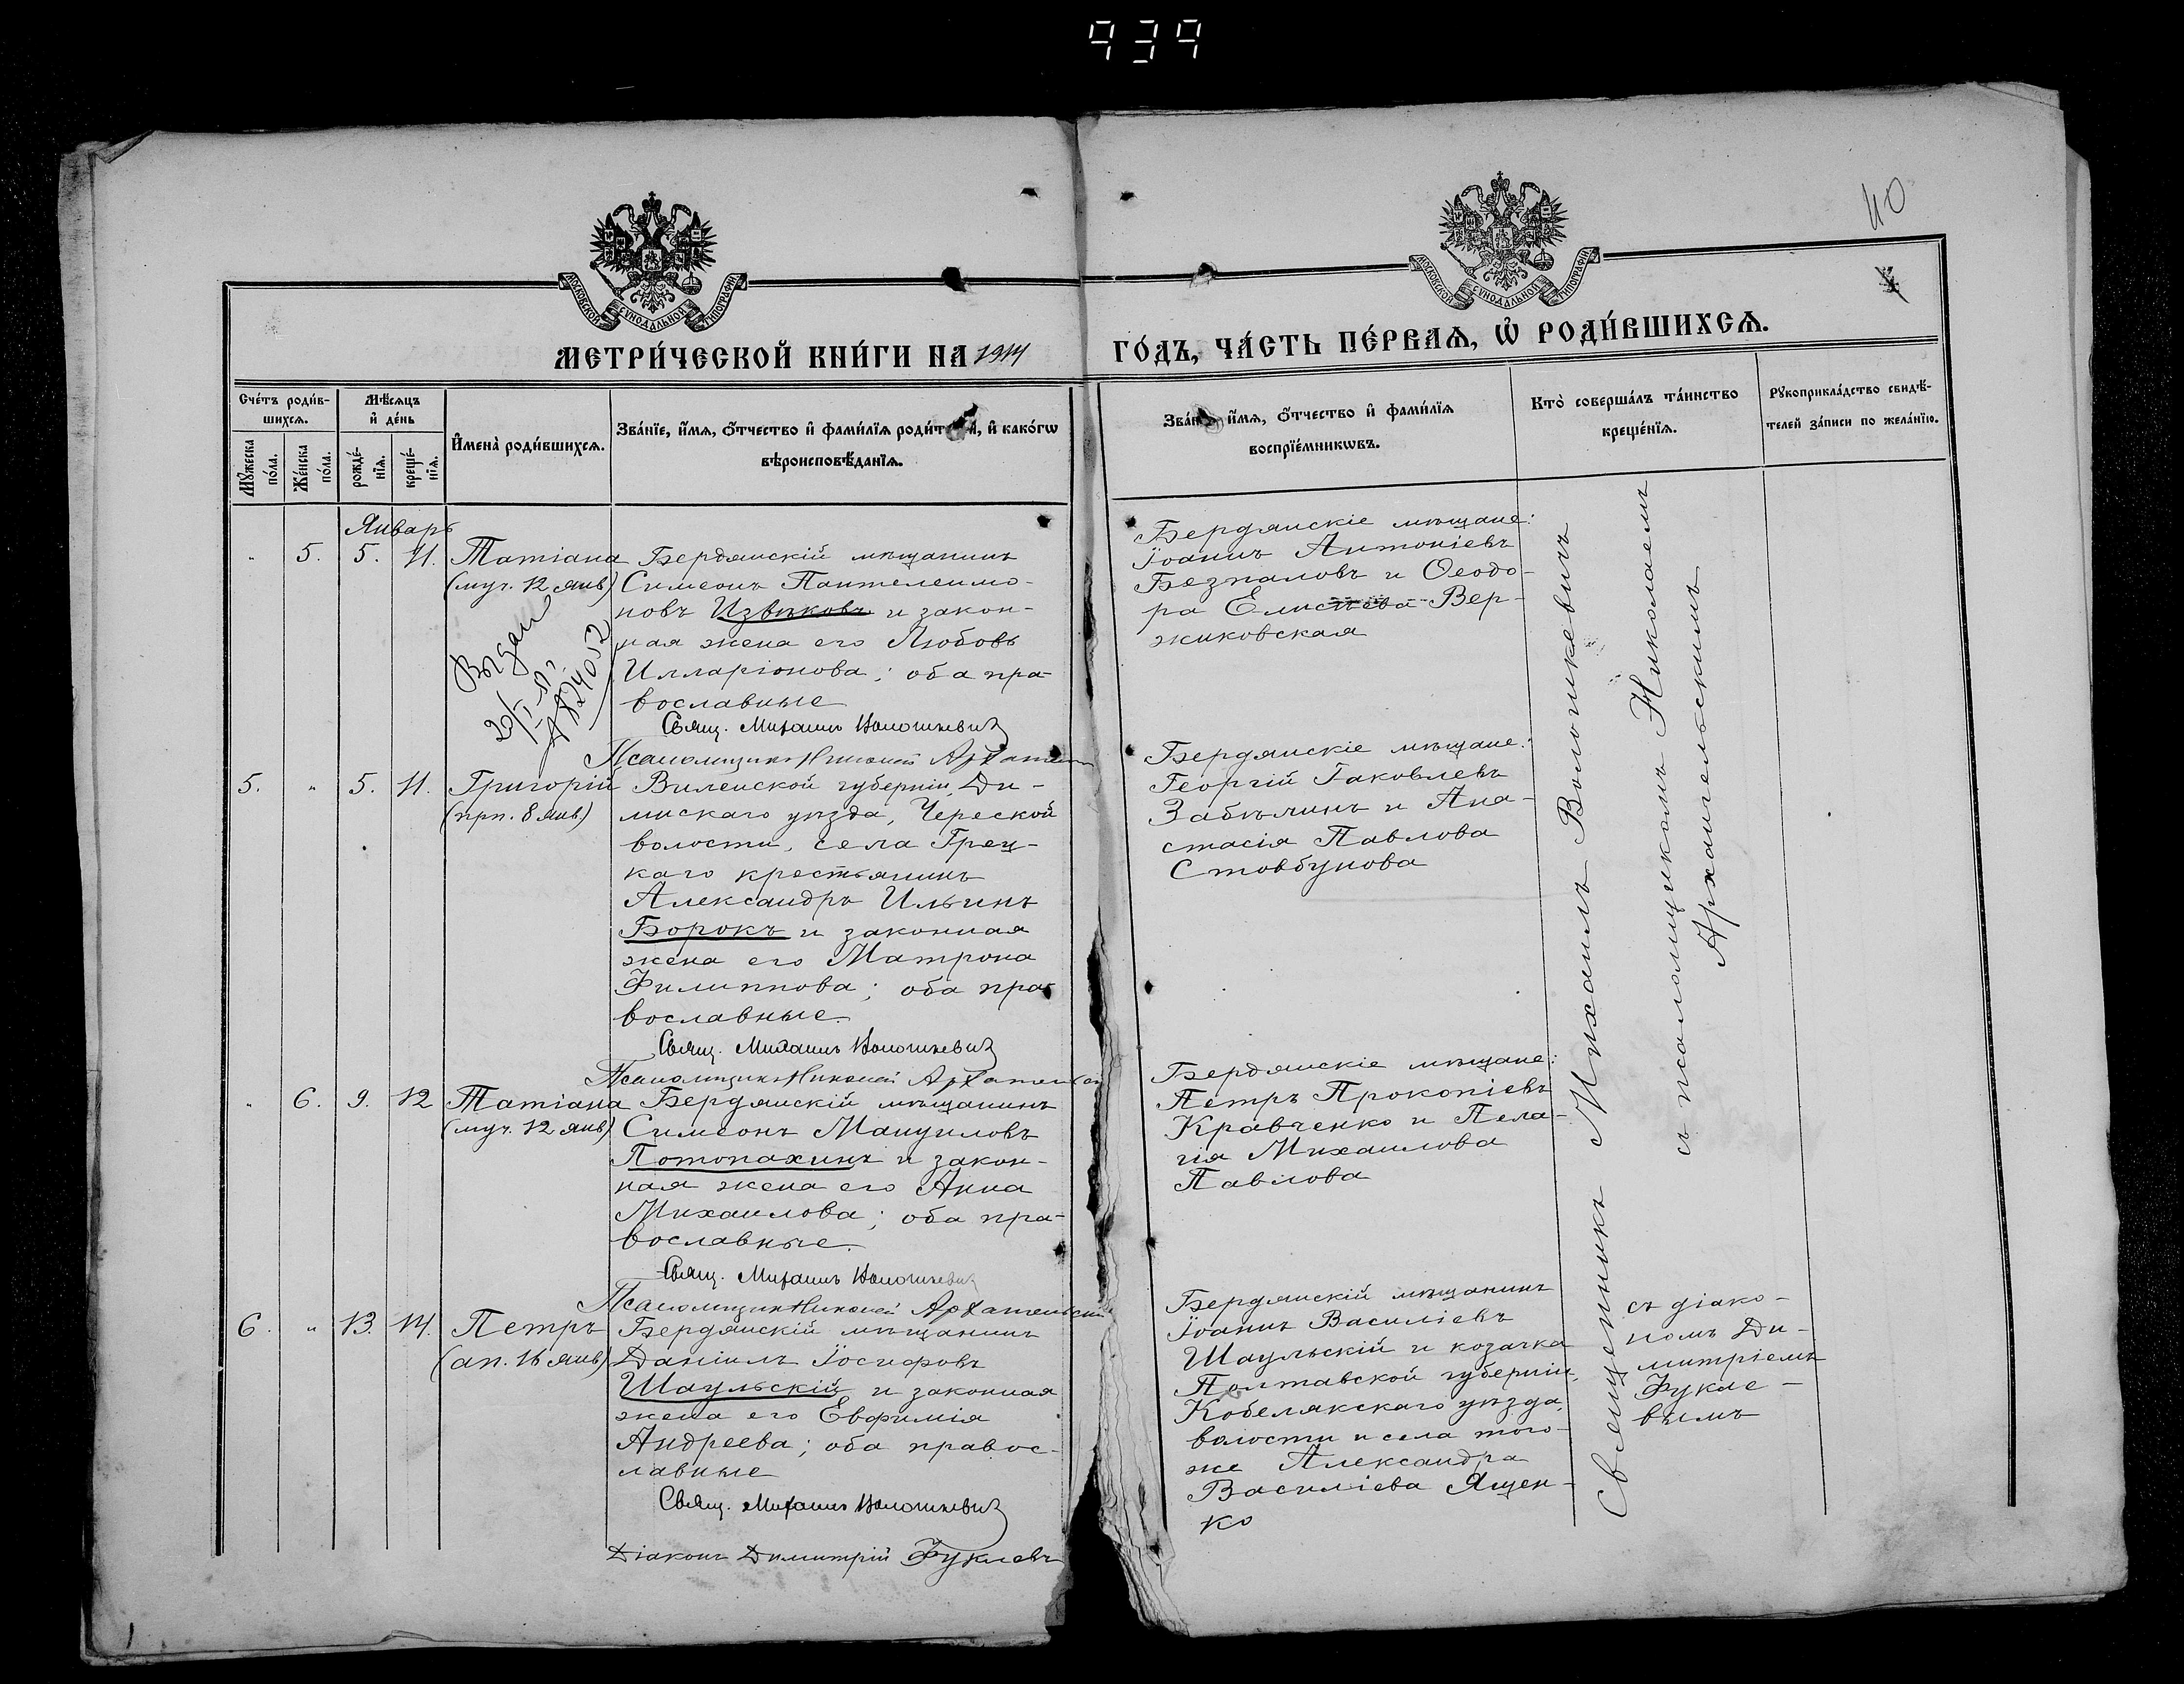 939
40
МОСКОВСКОЙ СУНОДАЛЬНОЙ ТИПОГРАФІИ
МОСКОВСКОЙ СУНОДАЛЬНОЙ ТИПОГРАФІИ
МЕТРИ́ЧЕСКОЙ КНИ́ГИ НА 1914
ГО́ДЪ, ЧА́СТЬ ПЕ́РВАѦ, Ѡ҆ РОДИ́ВШИХСѦ.
Сче́тъ роди́в-
шихсѧ.
Мꙋ́жеска
по́ла.
Же́нска
по́ла.
Мѣ́сѧцъ
и҆ де́нь
рожде́-
нїѧ.
креще́-
нїѧ.
И҆мена̀ роди́вшихсѧ.
Зва́нїе, и҆́мѧ, ѻ҆́тчество и҆ фами́лїѧ роди́т й, и҆ како́гѡ
вѣроисповѣ́данїѧ.
Зва́н и҆́мѧ, ѻ҆́тчество и҆ фами́лїѧ
воспрїе́мникѡвъ.
Кто̀ соверша́лъ та́инство
креще́нїѧ.
Рꙋкоприкла́дство свидѣ́-
телей за́писи по жела́нїю.
Январь
" 5. 5. 11. Татіана
(муч. 12 янв)
Выдан
20/I
№ 824052
Бердянскій мѣщанинъ
Симеонъ Пантелеимо-
новъ Извѣковъ и закон-
ная жена его Любовь
Илларіонова; оба пра-
вославные
Свящ. Михаилъ Волошкевич
Псаломщикъ Николай Архангел
Бердянскіе мѣщане:
Іоаннъ Антоніевъ
Безпаловъ и Ѳеодо-
ра Елисѣева Вер-
жиковская
5. " 5. 11. Григорій
(прп. 8 янв)
Виленской губерніи, Ди-
сскаго уѣзда, Череской
волости, села Грец-
каго крестьянинъ
Александръ Ильинъ
Борокъ и законная
жена его Матрона
Филиппова; оба пра-
вославные.
Свящ. Михаилъ Волошкевич
Псаломщикъ Николай Архангельск
Бердянскіе мѣщане:
Георгій Іаковлевъ
Забѣлинъ и Ана-
стасія Павлова
Стовбунова
" 6. 9. 12 Татіана
(муч. 12 янв)
Бердянскій мѣщанинъ
Симеонъ Мануиловъ
Потопахинъ и закон-
ная жена его Анна
Михаилова; оба пра-
вославные.
Свящ. Михаилъ Волошкевич
Псаломщикъ Николай Архангельскій
Бердянскіе мѣщане:
Петръ Прокопіевъ
Кравченко и Пела-
гія Михаилова
Павлова
6. " 13. 14. Петръ
(ап. 16 янв)
Бердянскій мѣщанинъ
Даніилъ Іосифовъ
Шаульскій и законная
жена его Евфимія
Андреева; оба правос-
лавные
Свящ. Михаилъ Волошкевич
Діаконъ Димитрій Фуклевъ
Бердянскій мѣщанинъ
Іоаннъ Василіевъ
Шаульскій и козачка
Полтавской губерніи,
Кобелякскаго уѣзда,
волости и села того-
же Александра
Василіева Ящен-
ко
Священникъ Михаилъ Волошкевичъ
съ псаломщикомъ Николаемъ
Архангельскимъ
съ діако-
номъ Ди-
митріемъ
Фукле-
вымъ